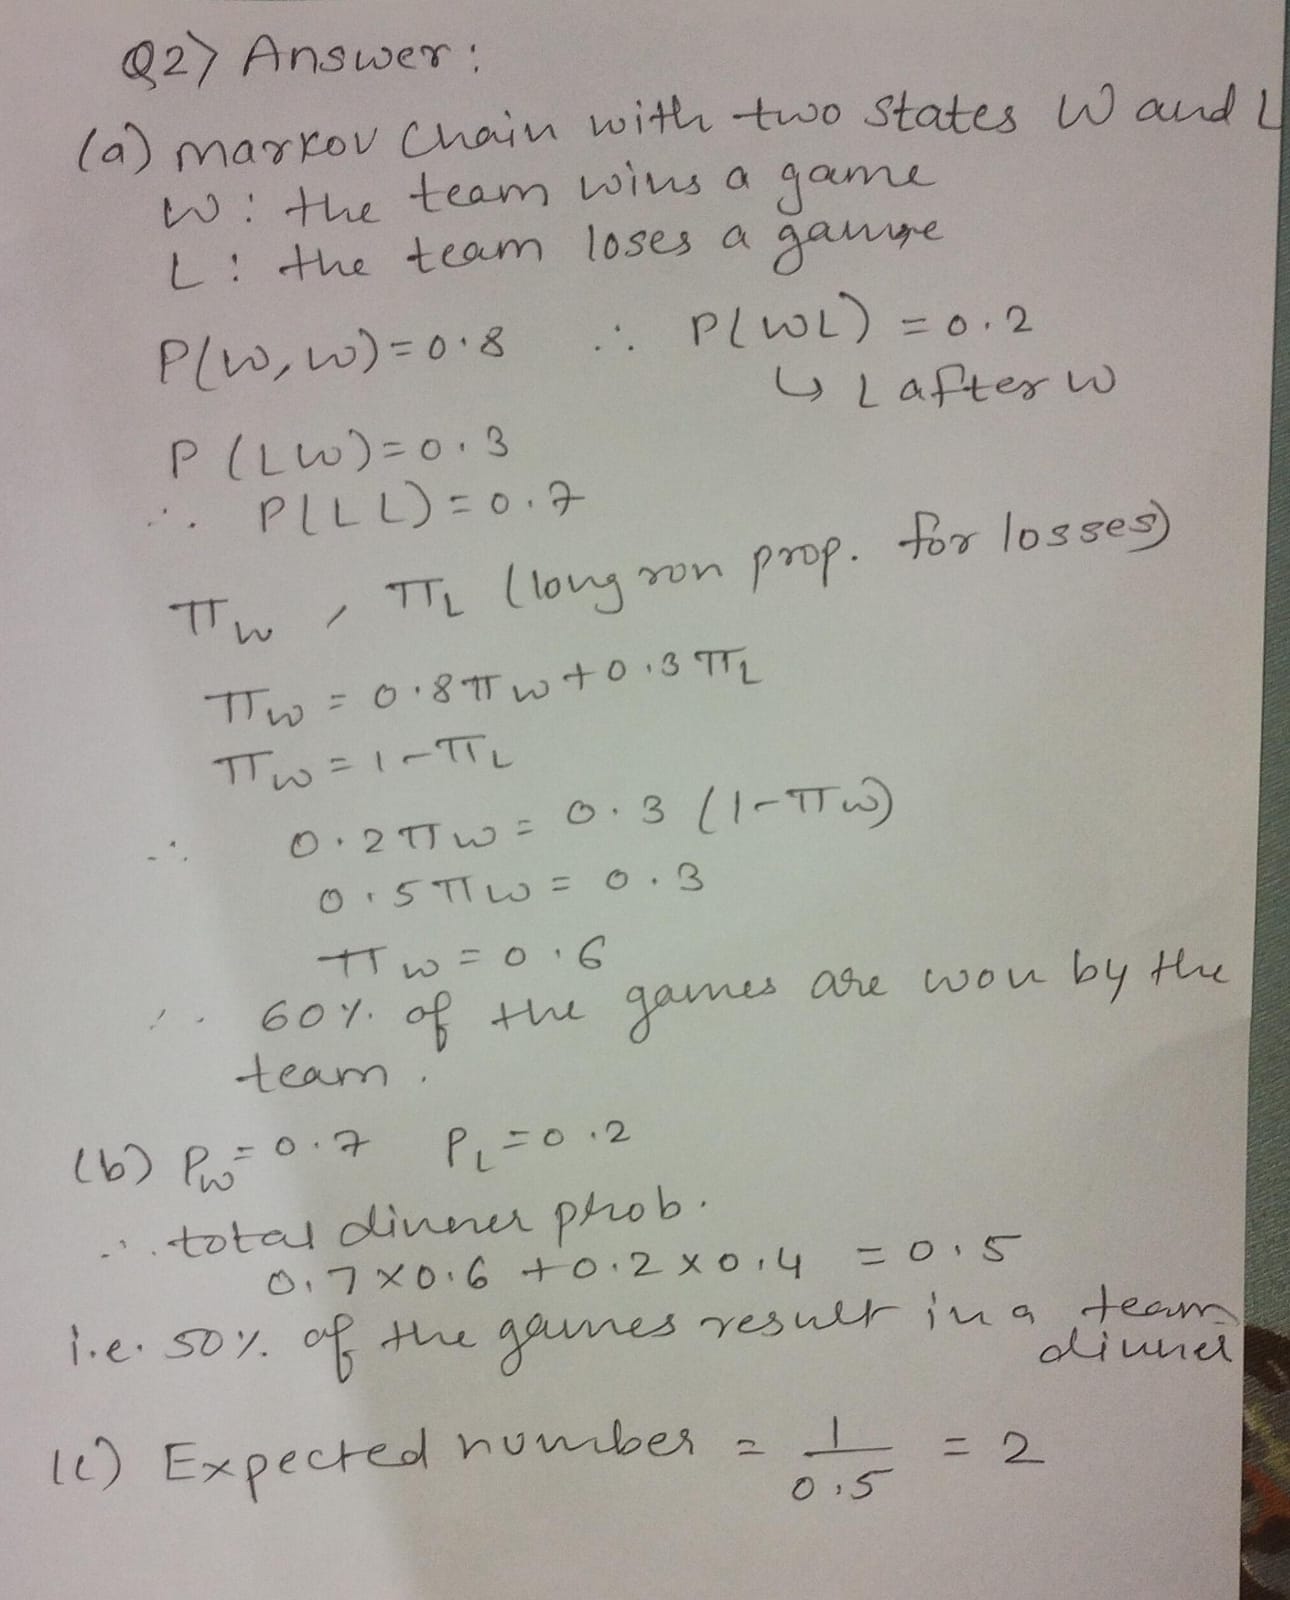 Q2) Answer:
(a) Markov Chain with two states W and L
W: the team wins a game
L: the team loses a game
P(W,W)=0.8 ∴ P(WL) = 0.2
↳ L after W
P(LW)=0.3
∴ P(LL)=0.7
π_W, π_L (long run prop. for losses)
π_W = 0.8π_W + 0.3π_L
π_W = 1-π_L
∴ 0.2π_W = 0.3(1-π_W)
0.5π_W = 0.3
π_W = 0.6
∴ 60% of the games are won by the
team.
(b) P_W=0.7 P_L=0.2
∴ total dinner prob.
0.7×0.6 + 0.2×0.4 = 0.5
i.e. 50% of the games result in a team
dinner
(c) Expected number = 1/0.5 = 2